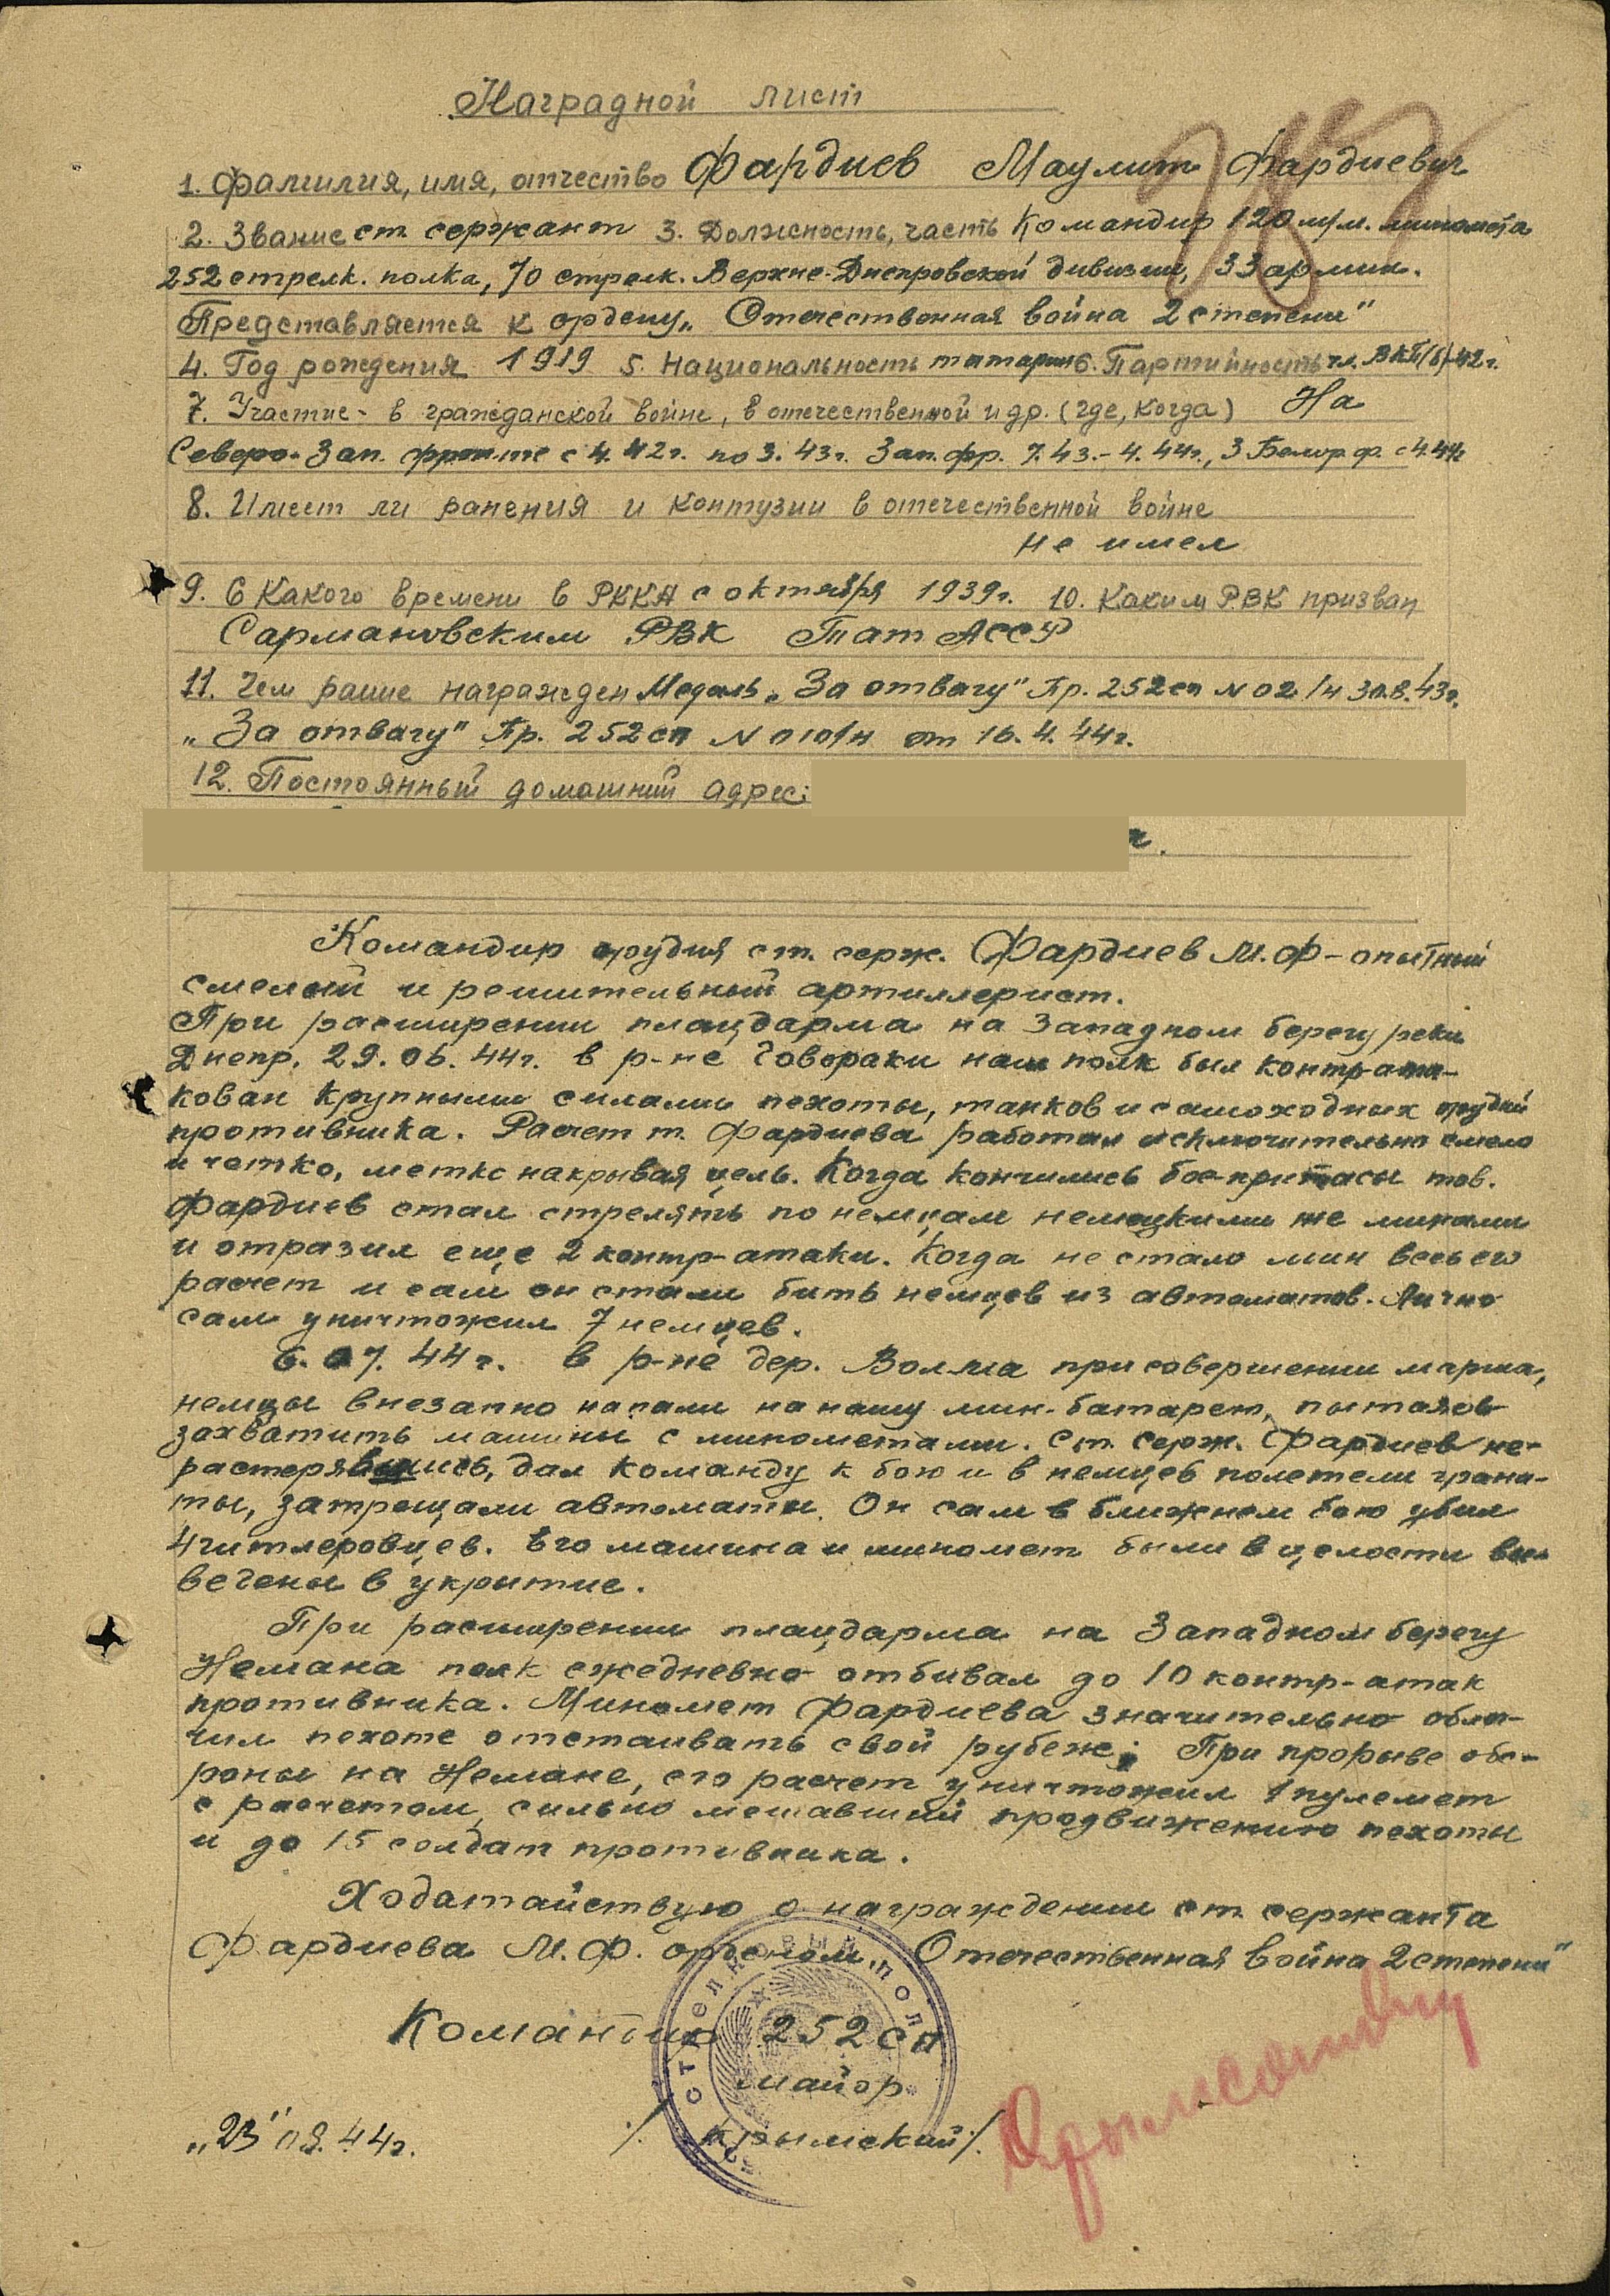 Наградной лист
1. Фамилия, имя, отчество Фардиев Маулит Фардиевич
2. Звание ст. сержант 3. Должность, часть Командир 120 м/м. миномета
252 стрелк. полка, 70 стрелк. Верхне-Днепровской дивизии, 33 армии.
Представляется к ордену „Отечественная война 2 степени"
4. Год рождения 1919 5. Национальность татарин 6. Партийность чл. ВКП(б)-42 г.
7. Участие - в гражданской войне, в отечественной и др. (где, когда) На
Северо-Зап. фронте с 4.42г. по 3.43г. Зап. фр. 7.43.-4.44г., 3 Белор. ф. с 4.44г
8. Имеет ли ранения и контузии в отечественной войне
не имел
9. С какого времени в РККА с октября 1939г. 10. Каким РВК призван
Сармановским РВК ТатАССР
11. Чем ранее награжден Медаль „За отвагу" Пр. 252сп N 02/н 30.8.43г.
„За отвагу" Пр. 252сп N 010/н от 16.4.44г.
12. Постоянный домашний адрес:
Командир орудия ст. серж. Фардиев М.Ф - опытный
смелый и решительный артиллерист.
При расширении плацдарма на западном берегу реки
Днепр. 29.06.44г. в р-не Говораки наш полк был контр-ата-
кован крупными силами пехоты, танков и самоходных орудий
противника. Расчет т. Фардиева работал исключительно смело
и четко, метко накрывая цель. Когда кончились бое-припасы тов.
Фардиев стал стрелять по немцам немецкими же минами
и отразил еще 2 контр-атаки. Когда не стало мин весь его
расчет и сам он стали бить немцев из автоматов. Лично
сам уничтожил 7 немцев.
6.07.44г. в р-не дер. Волма при совершении марша,
немцы внезапно напали на нашу мин-батарею, пытаясь
захватить машины с минометами. Ст. серж. Фардиев не-
растерявшись, дал команду к бою и в немцев полетели грана-
ты, затрещали автоматы. Он сам в ближнем бою убил
4 гитлеровцев. Его машина и миномет были в целости вы-
везены в укрытие.
При расширении плацдарма на западном берегу
Немана полк ежедневно отбивал до 10 контр-атак
противника. Миномет Фардиева значительно облег-
чил пехоте отстаивать свой рубеж; При прорыве обо-
роны на Немане, его расчет уничтожил 1 пулемет
с расчетом, сильно мешавший продвижению пехоты
и до 15 солдат противника.
Ходатайствую о награждении ст. сержанта
Фардиева М.Ф. орденом „Отечественная война 2 степени"
Командир 252 сп
майор
/Крымский/.
„23" 08.44г.
стрелковый полк